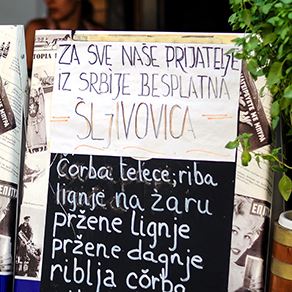 ZA SVE NAŠE PRIJATELJE
IZ SRBIJE BESPLATNA
- ŠLJIVOVICA -
Čorba teleće, riba
lignje na žaru
pržene lignje
pržene dagnje
riblja čorba